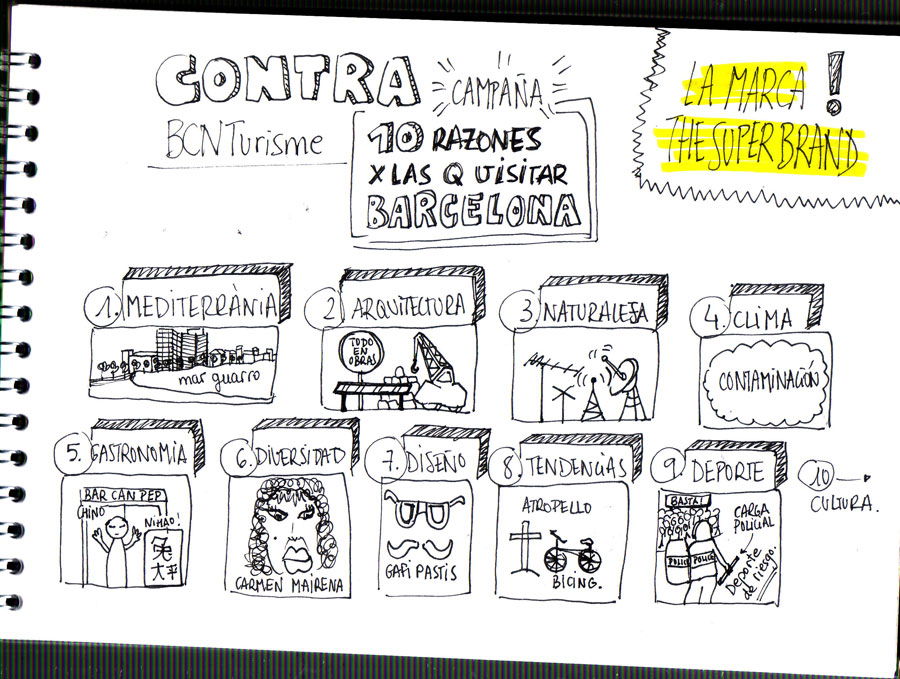 CONTRA
CAMPAÑA
BCNTurisme
10 RAZONES
X LAS Q VISITAR
BARCELONA
LA MARCA !
THE SUPER BRAND
1. MEDITERRÀNIA
mar guarro
2 ARQUITECTURA
TODO
EN
OBRAS
3. NATURALEJA
4. CLIMA
CONTAMINACION
5. GASTRONOMIA
BAR CAN PEP
CHINO
NIHAO!
兔
大平
6. DIVERSIDAD
CARMEN MAIRENA
7. DISEÑO
GAFI PASTIS
8. TENDENCIAS
ATROPELLO
BICING.
9. DEPORTE
BASTA!
CARGA
POLICIAL
POLICE
POLICE
Deporte
de riesgo.
10
CULTURA.